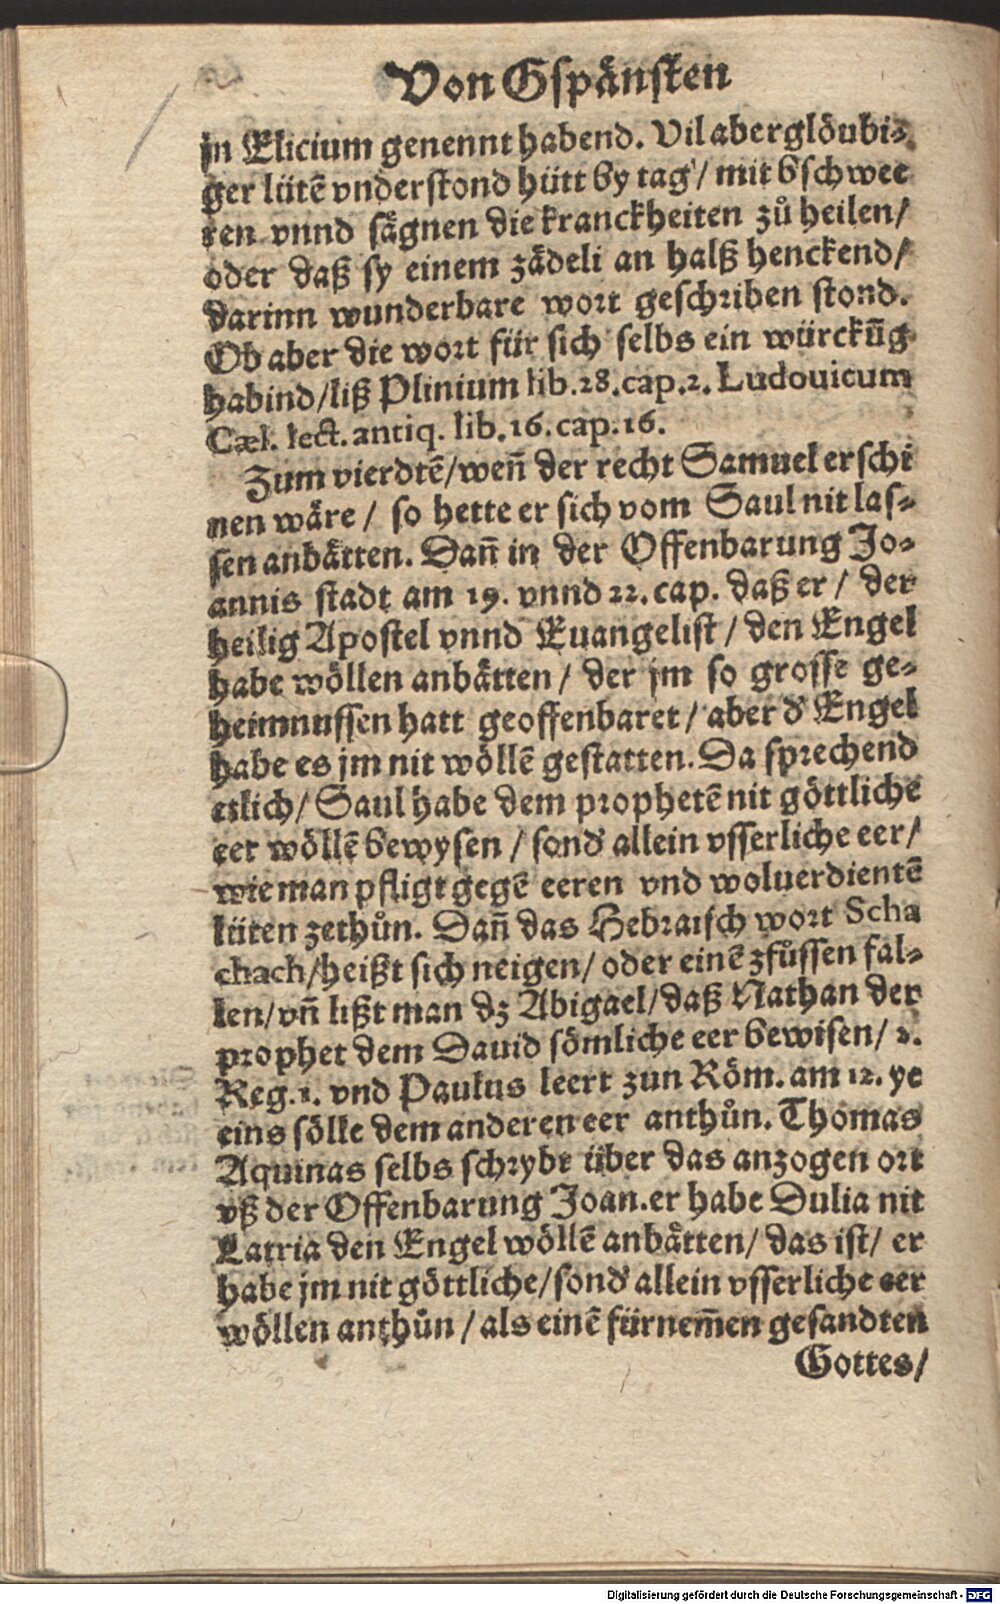 Von Gspånsten
jn Elicium genennt habend. Vil aberglöubi-
ger lütẽ vnderstond hütt by tag / mit bschwee
ren vnnd sågnen die kranckheiten zů heilen/
oder daß sy einem zådeli an halß henckend/
darinn wunderbare wort geschriben stond.
Ob aber die wort für sich selbs ein würckũg
habind/liß Plinium lib.28.cap.2. Ludouicum
Cæl. lect. antiq. lib.16.cap.16.
Zum vierdtẽ/weñ der recht Samuel erschi
nen wåre / so hette er sich vom Saul nit las-
sen anbåtten. Dañ in der Offenbarung Jo-
annis stadt am 19. vnnd 22. cap. daß er / der
heilig Apostel vnnd Euangelist / den Engel
habe wöllen anbåtten / der jm so grosse ge-
heimnussen hatt geoffenbaret / aber d' Engel
habe es jm nit wöllẽ gestatten. Da sprechend
etlich/ Saul habe dem prophetẽ nit göttliche
eer wöllẽ bewysen / sond' allein vsserliche eer/
wie man pfligt gegẽ eeren vnd woluerdientẽ
lüten zethůn. Dañ das Hebraisch wort Scha
chach/heißt sich neigen/ oder einẽ zfůssen fal-
len/ vñ lißt man dz Abigael/daß Nathan der
prophet dem Dauid sömliche eer bewisen/ 2.
Reg.1. vnd Paulus leert zun Röm. am 12. ye
eins sölle dem anderen eer anthůn. Thomas
Aquinas selbs schrybt über das anzogen ort
vß der Offenbarung Joan.er habe Dulia nit
Latria den Engel wöllẽ anbåtten/ das ist/ er
habe jm nit göttliche/sond' allein vsserliche eer
wöllen anthůn / als einẽ fürnem̃en gesandten
Gottes/
Digitalisierung gefördert durch die Deutsche Forschungsgemeinschaft - DFG